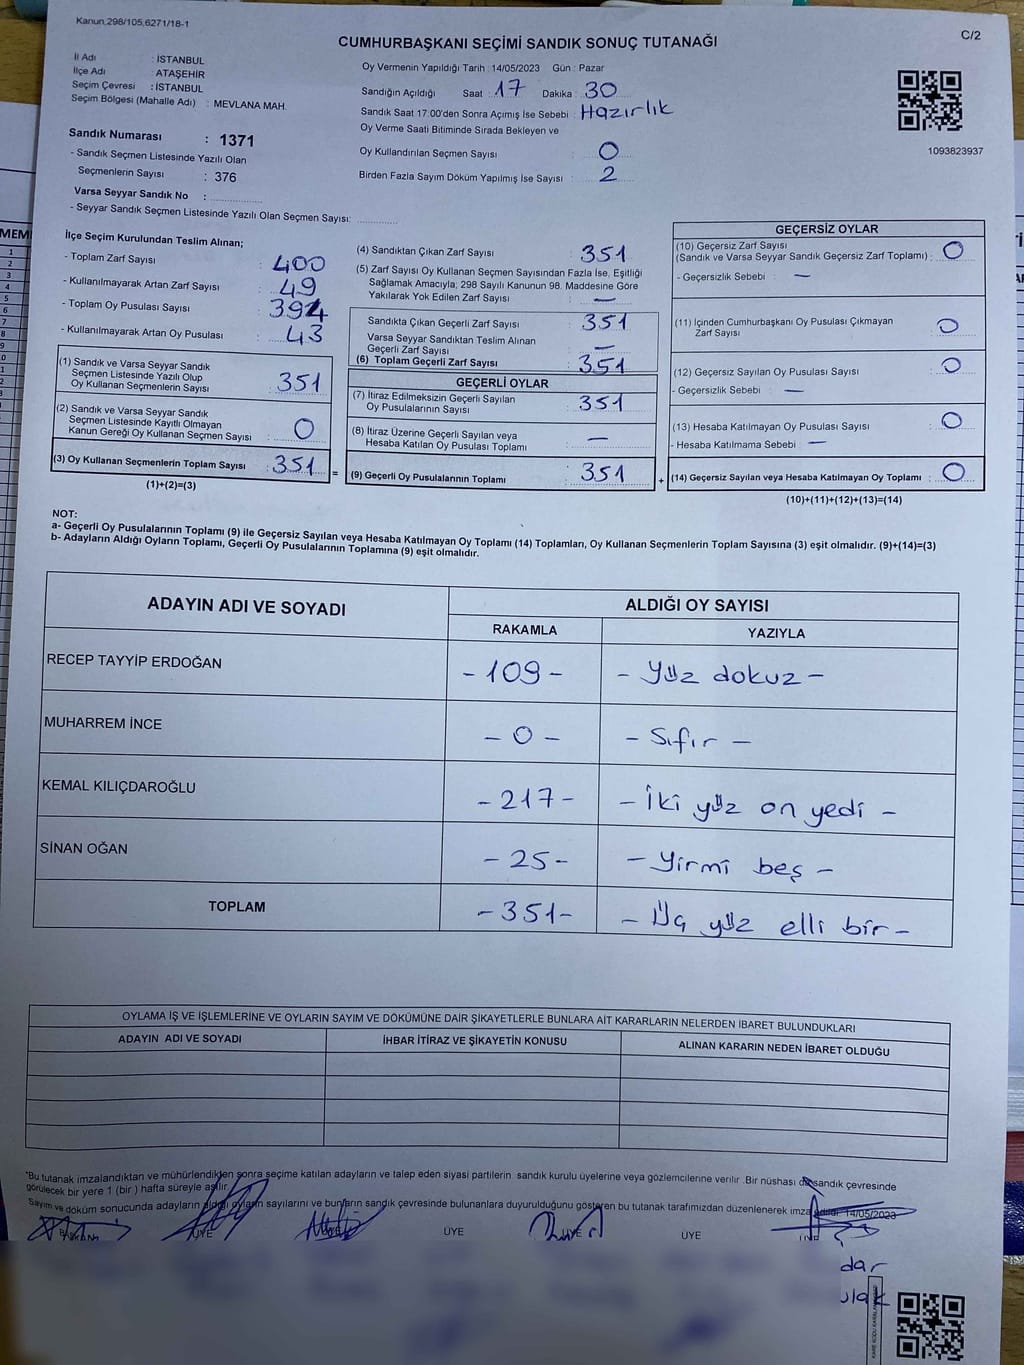 Kanun,298/105,6271/18-1
C/2
CUMHURBAŞKANI SEÇİMİ SANDIK SONUÇ TUTANAĞI
İl Adı : İSTANBUL
İlçe Adı : ATAŞEHİR
Seçim Çevresi : İSTANBUL
Seçim Bölgesi (Mahalle Adı) : MEVLANA MAH.
Sandık Numarası : 1371
- Sandık Seçmen Listesinde Yazılı Olan
Seçmenlerin Sayısı : 376
Varsa Seyyar Sandık No :
- Seyyar Sandık Seçmen Listesinde Yazılı Olan Seçmen Sayısı:
Oy Vermenin Yapıldığı Tarih : 14/05/2023 Gün : Pazar
Sandığın Açıldığı Saat : 17 Dakika : 30
Sandık Saat 17.00'den Sonra Açımış İse Sebebi : Hazırlık
Oy Verme Saati Bitiminde Sırada Bekleyen ve
Oy Kullandırılan Seçmen Sayısı : 0
Birden Fazla Sayım Döküm Yapılmış İse Sayısı : 2
1093823937
İlçe Seçim Kurulundan Teslim Alınan;
- Toplam Zarf Sayısı : 400
- Kullanılmayarak Artan Zarf Sayısı : 49
- Toplam Oy Pusulası Sayısı : 394
- Kullanılmayarak Artan Oy Pusulası : 43
(1) Sandık ve Varsa Seyyar Sandık
Seçmen Listesinde Yazılı Olup
Oy Kullanan Seçmenlerin Sayısı : 351
(2) Sandık ve Varsa Seyyar Sandık
Seçmen Listesinde Kayıtlı Olmayan
Kanun Gereği Oy Kullanan Seçmen Sayısı : 0
(3) Oy Kullanan Seçmenlerin Toplam Sayısı : 351
(1)+(2)=(3)
=
(4) Sandıktan Çıkan Zarf Sayısı : 351
(5) Zarf Sayısı Oy Kullanan Seçmen Sayısından Fazla İse, Eşitliği
Sağlamak Amacıyla; 298 Sayılı Kanunun 98. Maddesine Göre
Yakılarak Yok Edilen Zarf Sayısı : —
Sandıkta Çıkan Geçerli Zarf Sayısı : 351
Varsa Seyyar Sandıktan Teslim Alınan
Geçerli Zarf Sayısı : —
(6) Toplam Geçerli Zarf Sayısı : 351
GEÇERLİ OYLAR
(7) İtiraz Edilmeksizin Geçerli Sayılan
Oy Pusulalarının Sayısı : 351
(8) İtiraz Üzerine Geçerli Sayılan veya
Hesaba Katılan Oy Pusulası Toplamı : —
(9) Geçerli Oy Pusulalarının Toplamı : 351
+
GEÇERSİZ OYLAR
(10) Geçersiz Zarf Sayısı
(Sandık ve Varsa Seyyar Sandık Geçersiz Zarf Toplamı) : 0
- Geçersizlik Sebebi : —
(11) İçinden Cumhurbaşkanı Oy Pusulası Çıkmayan
Zarf Sayısı : 0
(12) Geçersiz Sayılan Oy Pusulası Sayısı : 0
- Geçersizlik Sebebi : —
(13) Hesaba Katılmayan Oy Pusulası Sayısı : 0
- Hesaba Katılmama Sebebi : —
(14) Geçersiz Sayılan veya Hesaba Katılmayan Oy Toplamı : 0
(10)+(11)+(12)+(13)=(14)
NOT:
a- Geçerli Oy Pusulalarının Toplamı (9) ile Geçersiz Sayılan veya Hesaba Katılmayan Oy Toplamı (14) Toplamları, Oy Kullanan Seçmenlerin Toplam Sayısına (3) eşit olmalıdır. (9)+(14)=(3)
b- Adayların Aldığı Oyların Toplamı, Geçerli Oy Pusulalarının Toplamına (9) eşit olmalıdır.
ADAYIN ADI VE SOYADI
ALDIĞI OY SAYISI
RAKAMLA YAZIYLA
RECEP TAYYİP ERDOĞAN - 109 - - Yüz dokuz -
MUHARREM İNCE - 0 - - Sıfır -
KEMAL KILIÇDAROĞLU - 217 - - İki yüz on yedi -
SİNAN OĞAN - 25 - - Yirmi beş -
TOPLAM - 351 - - Üç yüz elli bir -
OYLAMA İŞ VE İŞLEMLERİNE VE OYLARIN SAYIM VE DÖKÜMÜNE DAİR ŞİKAYETLERLE BUNLARA AİT KARARLARIN NELERDEN İBARET BULUNDUKLARI
ADAYIN ADI VE SOYADI İHBAR İTİRAZ VE ŞİKAYETİN KONUSU ALINAN KARARIN NEDEN İBARET OLDUĞU
*Bu tutanak imzalandıktan ve mühürlendikten sonra seçime katılan adayların ve talep eden siyasi partilerin sandık kurulu üyelerine veya gözlemcilerine verilir .Bir nüshası da sandık çevresinde
görülecek bir yere 1 (bir ) hafta süreyle asılır.
Sayım ve döküm sonucunda adayların aldığı oyların sayılarını ve bunların sandık çevresinde bulunanlara duyurulduğunu gösteren bu tutanak tarafımızdan düzenlenerek imza edildi. 14/05/2023
BAŞKAN ÜYE ÜYE ÜYE ÜYE
dar